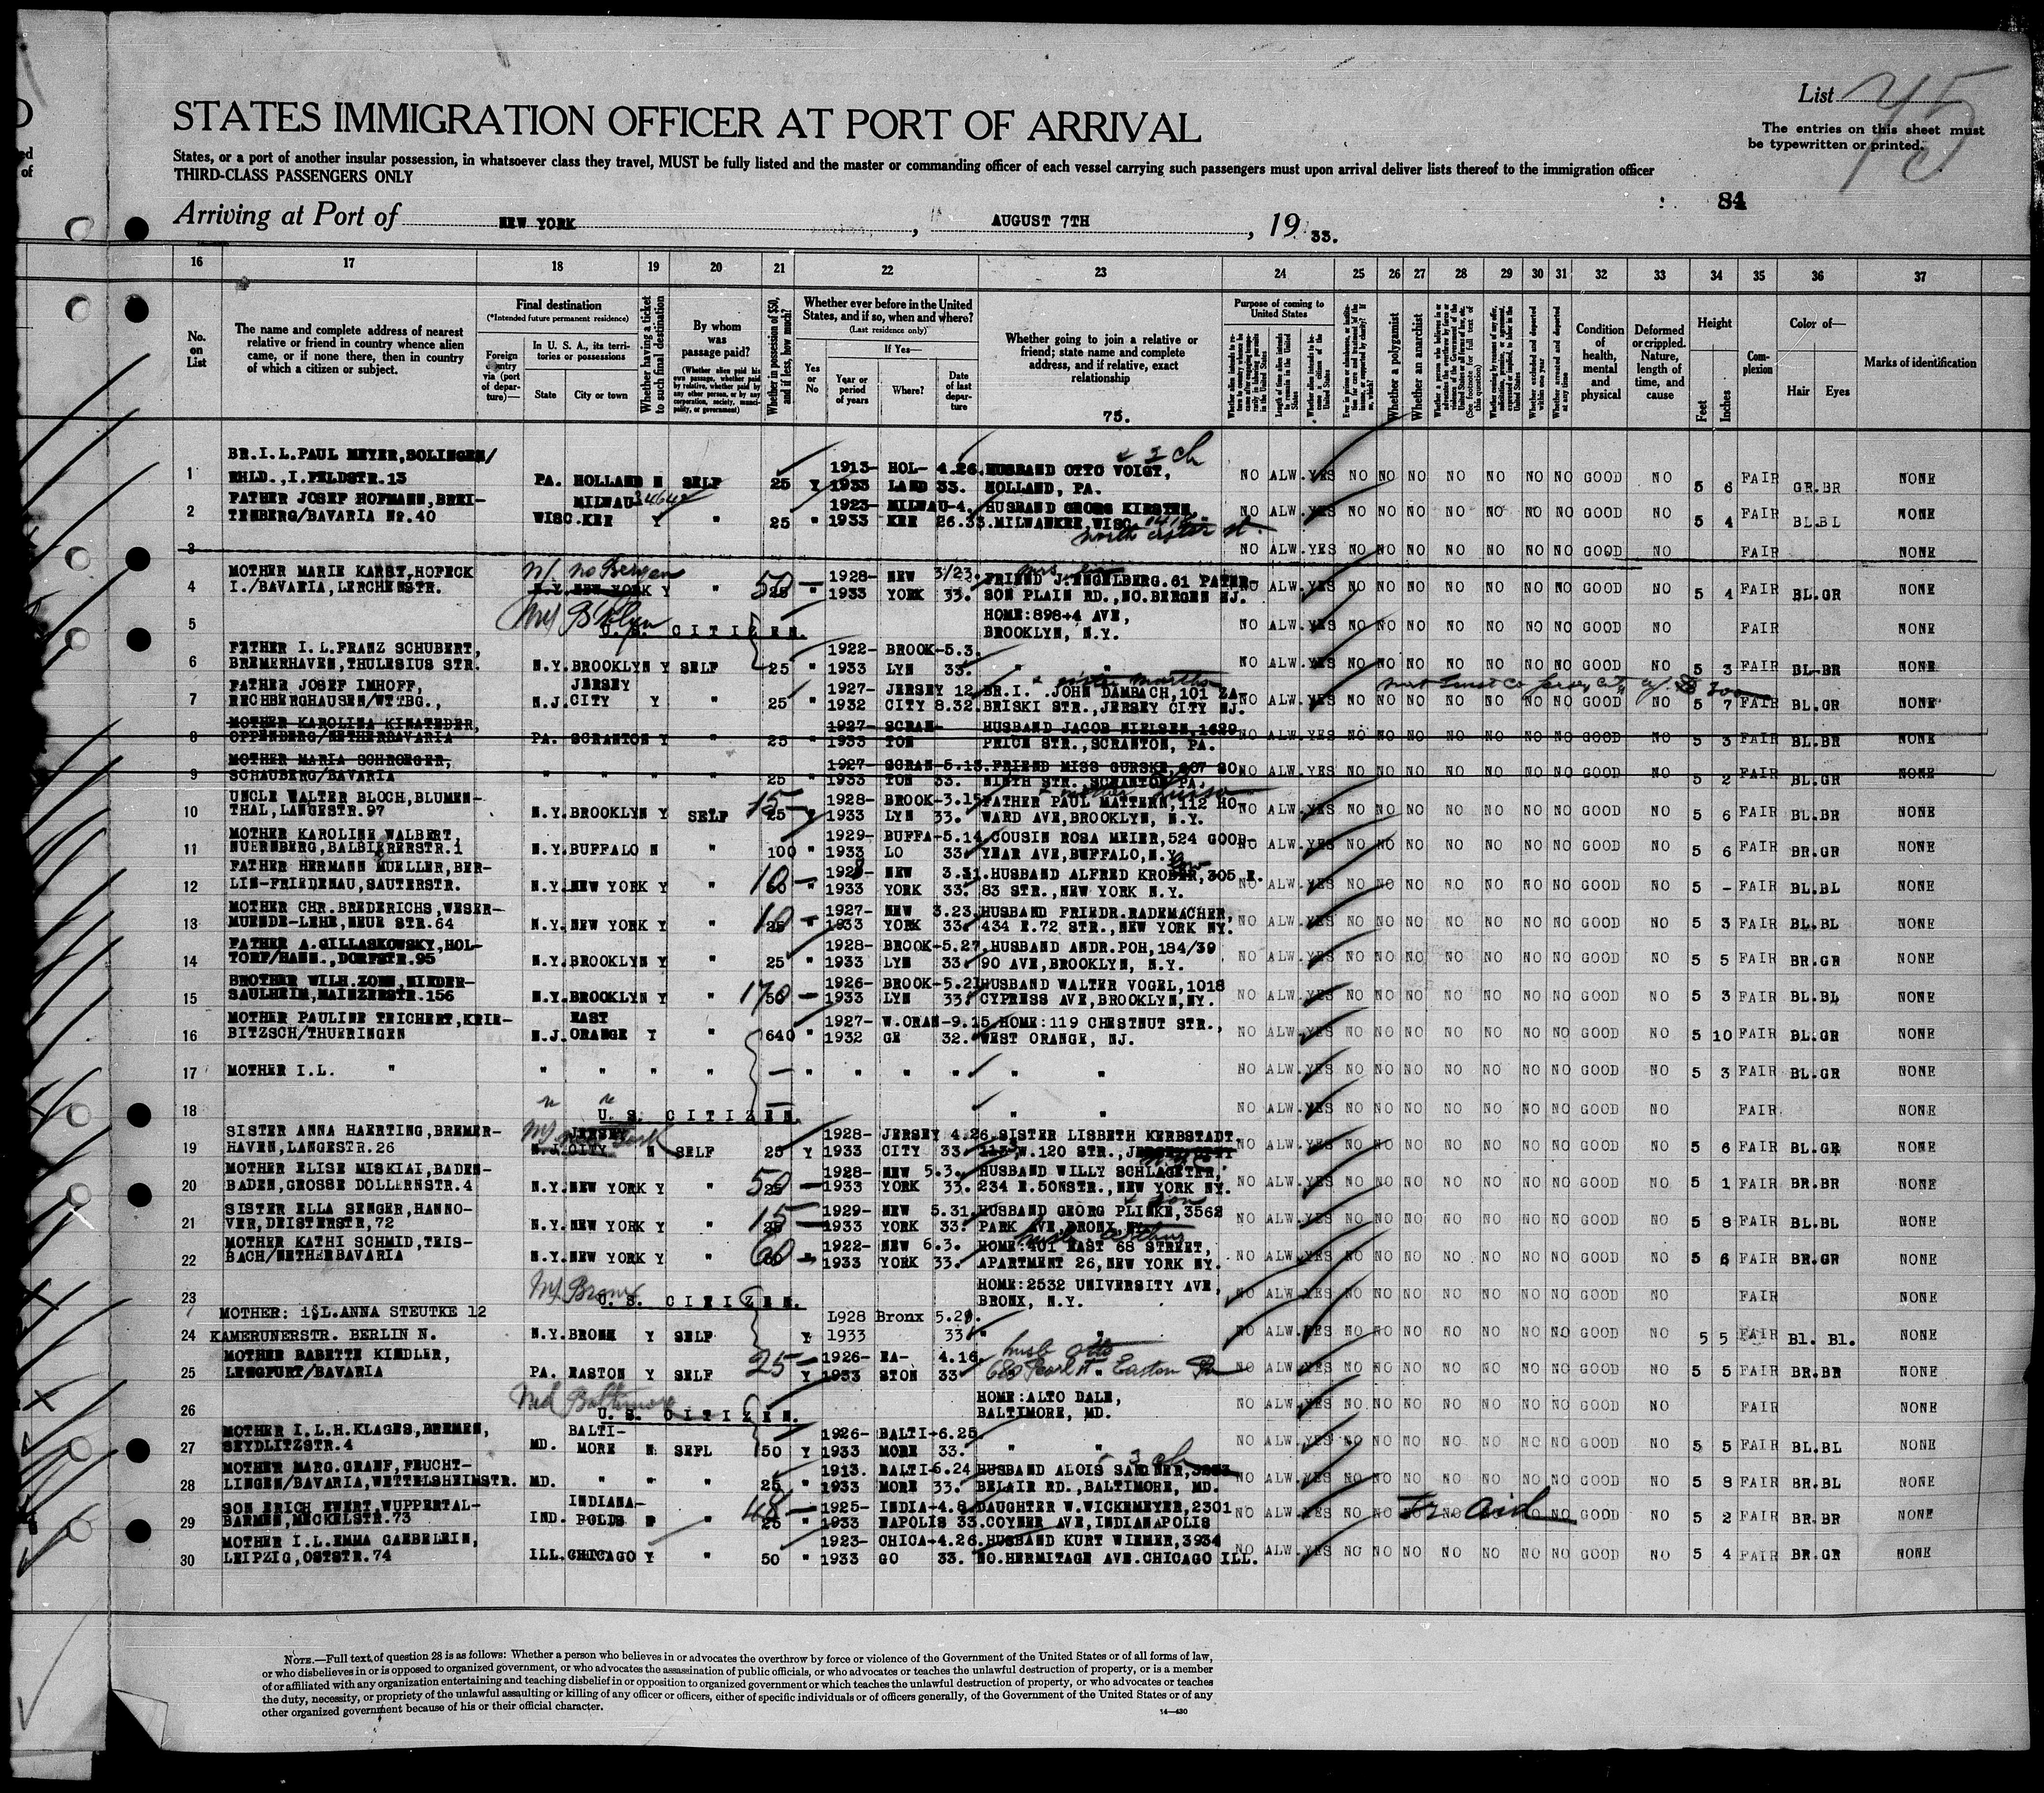 List 75
STATES IMMIGRATION OFFICER AT PORT OF ARRIVAL
The entries on this sheet must
be typewritten or printed.
States, or a port of another insular possession, in whatsoever class they travel, MUST be fully listed and the master or commanding officer of each vessel carrying such passengers must upon arrival deliver lists thereof to the immigration officer
THIRD-CLASS PASSENGERS ONLY
84
Arriving at Port of NEW YORK, AUGUST 7TH, 19 33.
16 17 18 19 20 21 22 23 24 25 26 27 28 29 30 31 32 33 34 35 36 37
No. on List
The name and complete address of nearest relative or friend in country whence alien came, or if none there, then in country of which a citizen or subject.
Final destination
(*Intended future permanent residence)
Foreign country via (port of departure)—
In U. S. A., its territories or possessions
State City or town
Whether having a ticket to such final destination
By whom was passage paid?
(Whether alien paid his own passage, whether paid by relative, whether paid by any other person, or by any corporation, society, municipality, or government)
Whether in possession of $50, and if less, how much?
Whether ever before in the United States, and if so, when and where?
(Last residence only)
Yes or No
If Yes—
Year or period of years Where? Date of last departure
Whether going to join a relative or friend; state name and complete address, and if relative, exact relationship
75.
Purpose of coming to United States
Whether a polygamist
Whether an anarchist
Condition of health, mental and physical
Deformed or crippled. Nature, length of time, and cause
Height
Feet Inches
Complexion
Color of—
Hair Eyes
Marks of identification
& 2 ch
1 BR.I.L.PAUL MEYER,SOLINGEN/ RHLD.,I.FELDSTR.13 PA. HOLLAND N SELF 25 Y 1913-1933 HOLLAND 4.26.33. HUSBAND OTTO VOIGT, HOLLAND, PA. NO ALW. YES NO NO NO NO NO NO NO GOOD NO 5 6 FAIR GR.BR NONE
2 FATHER JOSEF HOFMANN,BREITENBERG/BAVARIA No.40 WISC. MILWAUKEE Y " 25 " 1923-1933 MILWAUKEE 4.26.33. HUSBAND GEORG KIRSTEN, MILWANKEE,WISC. NO ALW. YES NO NO NO NO NO NO NO GOOD NO 5 4 FAIR BL.BL NONE
3 NO ALW. YES NO NO NO NO NO NO NO GOOD NO FAIR NONE
4 MOTHER MARIE KARST,HOFECK I./BAVARIA, LERCHENSTR. NJ No Bergen N.Y. NEW YORK Y " 50 25 " 1928-1933 NEW YORK 3/23.33. FRIEND J.ENGELBERG.61 PATERSON PLAIN RD.,NO.BERGEN NJ. NO ALW. YES NO NO NO NO NO NO NO GOOD NO 5 4 FAIR BL.GR NONE
5 NY Bklyn U. S. CITIZEN. HOME:898+4 AVE, BROOKLYN, N.Y. NO ALW. YES NO NO NO NO NO NO NO GOOD NO FAIR NONE
6 FATHER I.L.FRANZ SCHUBERT, BREMERHAVEN,THULESIUS STR. N.Y. BROOKLYN Y SELF 25 " 1922-1933 BROOKLYN 5.3.33. " " NO ALW. YES NO NO NO NO NO NO NO GOOD NO 5 3 FAIR BL-BR NONE
& sister Martha
7 FATHER JOSEF IMHOFF, RECHBERGHAUSEN/WTTBG., N.J. JERSEY CITY Y " 25 " 1927-1932 JERSEY CITY 12.8.32. BR.I. JOHN DAMBACH,101 ZABRISKI STR.,JERSEY CITY NJ. NO ALW. YES NO NO NO NO NO NO NO GOOD NO 5 7 FAIR BL.GR NONE
8 MOTHER KAROLINA KINATEDER, OPPENBERG/NETHERBAVARIA PA. SCRANTON Y " 25 " 1927-1933 SCRANTON HUSBAND JACOB NIELSEN,1629 PRICE STR.,SCRANTON, PA. NO ALW. YES NO NO NO NO NO NO NO GOOD NO 5 3 FAIR BL.BR NONE
9 MOTHER MARIA SCHROEGER, SCHAUBERG/BAVARIA " " " " 25 " 1927-1933 SCRANTON 5.13.33. FRIEND MISS GURSKE,607 SO. NINTH STR.,SCRANTON,PA. NO ALW. YES NO NO NO NO NO NO NO GOOD NO 5 2 FAIR BL.GR NONE
10 UNCLE WALTER BLOCH,BLUMENTHAL,LANGESTR.97 N.Y. BROOKLYN Y SELF 15 25 Y 1928-1933 BROOKLYN 3.15.33. FATHER PAUL MATTERN,112 HOWARD AVE,BROOKLYN, N.Y. NO ALW. YES NO NO NO NO NO NO NO GOOD NO 5 6 FAIR BL.BR NONE
11 MOTHER KAROLINE WALBERT, NUERNBERG,BALBIERERSTR.1 N.Y. BUFFALO N " 100 " 1929-1933 BUFFALO 5.14.33. COUSIN ROSA MEIER,524 GOODYEAR AVE,BUFFALO,N.Y. NO ALW. YES NO NO NO NO NO NO NO GOOD NO 5 6 FAIR BR.GR NONE
12 FATHER HERMANN MUELLER,BERLIN-FRIEDENAU,SAUTERSTR. N.Y. NEW YORK Y " 10 " 1928-1933 NEW YORK 3.31.33. HUSBAND ALFRED KROBER,305 E. 83 STR.,NEW YORK N.Y. NO ALW. YES NO NO NO NO NO NO NO GOOD NO 5 - FAIR BL.BL NONE
13 MOTHER CHR.BREDERICHS,WESERMUENDE-LEHE,NEUE STR.64 N.Y. NEW YORK Y " 10 25 " 1927-1933 NEW YORK 3.23.33. HUSBAND FRIEDR.RADEMACHER, 434 E.72 STR.,NEW YORK NY. NO ALW. YES NO NO NO NO NO NO NO GOOD NO 5 3 FAIR BL.BL NONE
14 FATHER A.GILLASKOWSKY,HOLTORF/HANN.,DORFSTR.95 N.Y. BROOKLYN Y " 25 " 1928-1933 BROOKLYN 5.27.33. HUSBAND ANDR.POH,184/39 90 AVE,BROOKLYN, N.Y. NO ALW. YES NO NO NO NO NO NO NO GOOD NO 5 5 FAIR BR.GR NONE
15 BROTHER WILH.ZORN,NIEDERSAULHEIM,MAINZERSTR.156 N.Y. BROOKLYN Y " 170 50 1926-1933 BROOKLYN 5.21.33. HUSBAND WALTER VOGEL,1018 CYPRESS AVE,BROOKLYN,NY. NO ALW. YES NO NO NO NO NO NO NO GOOD NO 5 3 FAIR BL.BL NONE
16 MOTHER PAULINE TEICHERT,KRIEBITZSCH/THUERINGEN N.J. EAST ORANGE Y " 640 " 1927-1932 W.ORANGE 9.15.32. HOME:119 CHESTNUT STR., WEST ORANGE, NJ. NO ALW. YES NO NO NO NO NO NO NO GOOD NO 5 10 FAIR BL.GR NONE
17 MOTHER I.L. " " " " " — " " " " " " NO ALW. YES NO NO NO NO NO NO NO GOOD NO 5 3 FAIR BL.GR NONE
18 U. S. CITIZEN. " " NO ALW. YES NO NO NO NO NO NO NO GOOD NO FAIR NONE
19 SISTER ANNA HAERTING,BREMERHAVEN,LANGESTR.26 NY New York N.J. JERSEY CITY N SELF 25 Y 1928-1933 JERSEY CITY 4.26.33 SISTER LISBETH KERBSTADT W.120 STR.,JERSEY CITY NO ALW. YES NO NO NO NO NO NO NO GOOD NO 5 6 FAIR BL.GR NONE
20 MOTHER ELISE MISKIAI,BADEN-BADEN,GROSSE DOLLERNSTR.4 N.Y. NEW YORK Y " 50 25 1928-1933 NEW YORK 5.3.33. HUSBAND WILLY SCHLAGETER, 234 E.50NSTR.,NEW YORK NY. NO ALW. YES NO NO NO NO NO NO NO GOOD NO 5 1 FAIR BR.BR NONE
& son
21 SISTER ELLA SENGER,HANNOVER,DEISTERSTR,72 N.Y. NEW YORK Y " 15 25 1929-1933 NEW YORK 5.31.33. HUSBAND GEORG PLINKE,3562 PARK AVE,BRONX,NY. NO ALW. YES NO NO NO NO NO NO NO GOOD NO 5 8 FAIR BL.BL NONE
husb Arthur
22 MOTHER KATHI SCHMID,TEISBACH/NETHERBAVARIA N.Y. NEW YORK Y " 60 1922-1933 NEW YORK 6.3.33. HOME:401 EAST 68 STREET, APARTMENT 26,NEW YORK NY. NO ALW. YES NO NO NO NO NO NO NO GOOD NO 5 6 FAIR BR.GR NONE
23 NY Bronx U. S. CITIZEN. HOME:2532 UNIVERSITY AVE, BRONX, N.Y. NO ALW. YES NO NO NO NO NO NO NO FAIR NONE
24 MOTHER: i.L.ANNA STEUTKE 12 KAMERUNERSTR. BERLIN N. N.Y. BRONX Y SELF Y L928 1933 Bronx 5.29.33 " " NO ALW. YES NO NO NO NO NO NO NO GOOD NO 5 5 FAIR Bl. Bl. NONE
25 MOTHER BABETTE KINDLER, LENGFURT/BAVARIA PA. EASTON Y SELF 25 Y 1926-1933 EASTON 4.16.33 husb Otto Pearl St Easton Pa NO ALW. YES NO NO NO NO NO NO NO GOOD NO 5 5 FAIR BR.BR NONE
26 Md Baltimore U. S. CITIZEN. HOME:ALTO DALE, BALTIMORE, MD. NO ALW. YES NO NO NO NO NO NO NO GOOD NO FAIR NONE
27 MOTHER I.L.H.KLAGES,BREMEN, SEYDLITZSTR.4 MD. BALTIMORE N SEFL 50 Y 1926-1933 BALTIMORE 6.25.33. " " NO ALW. YES NO NO NO NO NO NO NO GOOD NO 5 5 FAIR BL.BL NONE
& 3 ch
28 MOTHER MARG.GRAEF,FEUCHTLINGEN/BAVARIA,WETTELSHEIMSTR. MD. " " " 25 " 1913. 1933 BALTIMORE 6.24.33. HUSBAND ALOIS BELAIR RD.,BALTIMORE, MD. NO ALW. YES NO NO NO NO NO NO NO GOOD NO 5 8 FAIR BR.BL NONE
29 SON ERICH EWERT,WUPPERTAL-BARMEN,MECKELSTR.73 IND. INDIANAPOLIS " 48 25 1925-1933 INDIANAPOLIS 4.8.33. DAUGHTER W.WICKEMEYER,2301 COYNER AVE,INDIANAPOLIS NO ALW. YES NO NO NO NO NO NO NO GOOD NO 5 2 FAIR BR.BR NONE
30 MOTHER I.L.EMMA GAEBELEIN, LEIPZIG,OSTSTR.74 ILL. CHICAGO Y " 50 " 1923-1933 CHICAGO 4.26.33. HUSBAND KURT WIEMER,3934 NO.HERMITAGE AVE.CHICAGO ILL. NO ALW. YES NO NO NO NO NO NO NO GOOD NO 5 4 FAIR BR.GR NONE
NOTE.—Full text of question 28 is as follows: Whether a person who believes in or advocates the overthrow by force or violence of the Government of the United States or of all forms of law,
or who disbelieves in or is opposed to organized government, or who advocates the assassination of public officials, or who advocates or teaches the unlawful destruction of property, or is a member
of or affiliated with any organization entertaining and teaching disbelief in or opposition to organized government or which teaches the unlawful destruction of property, or who advocates or teaches
the duty, necessity, or propriety of the unlawful assaulting or killing of any officer or officers, either of specific individuals or of officers generally, of the Government of the United States or of any
other organized government because of his or their official character.
14—430